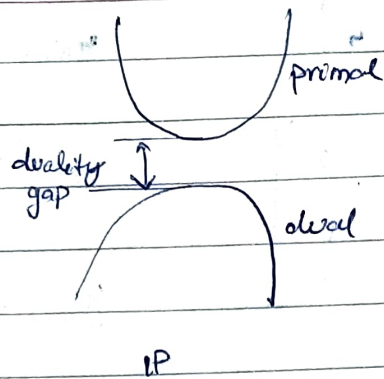 primal
duality
gap
dual
LP